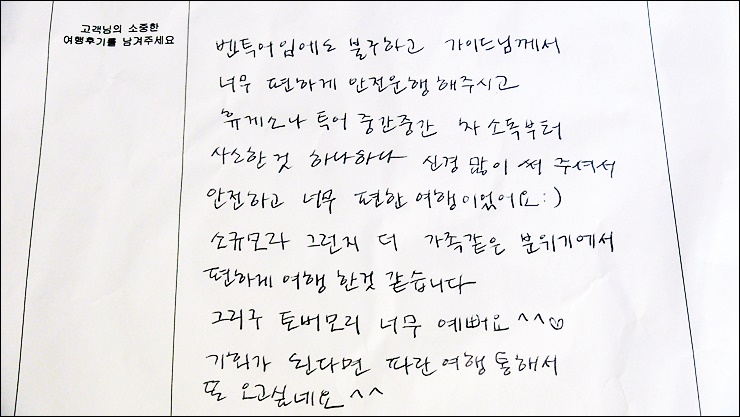 고객님의 소중한
여행후기를 남겨주세요
벤투어임에도 불구하고 가이드님께서
너무 편하게 안전운행해주시고
휴게소나 투어 중간중간 차 소독부터
사소한것 하나하나 신경 많이 써 주셔서
안전하고 너무 편한여행이었어요:)
소규모라 그런지 더 가족같은 분위기에서
편하게 여행 한것 같습니다
그리구 토버모리 너무 예뻐요^^♡
기회가 된다면 파란여행통해서
또 오고싶네요^^